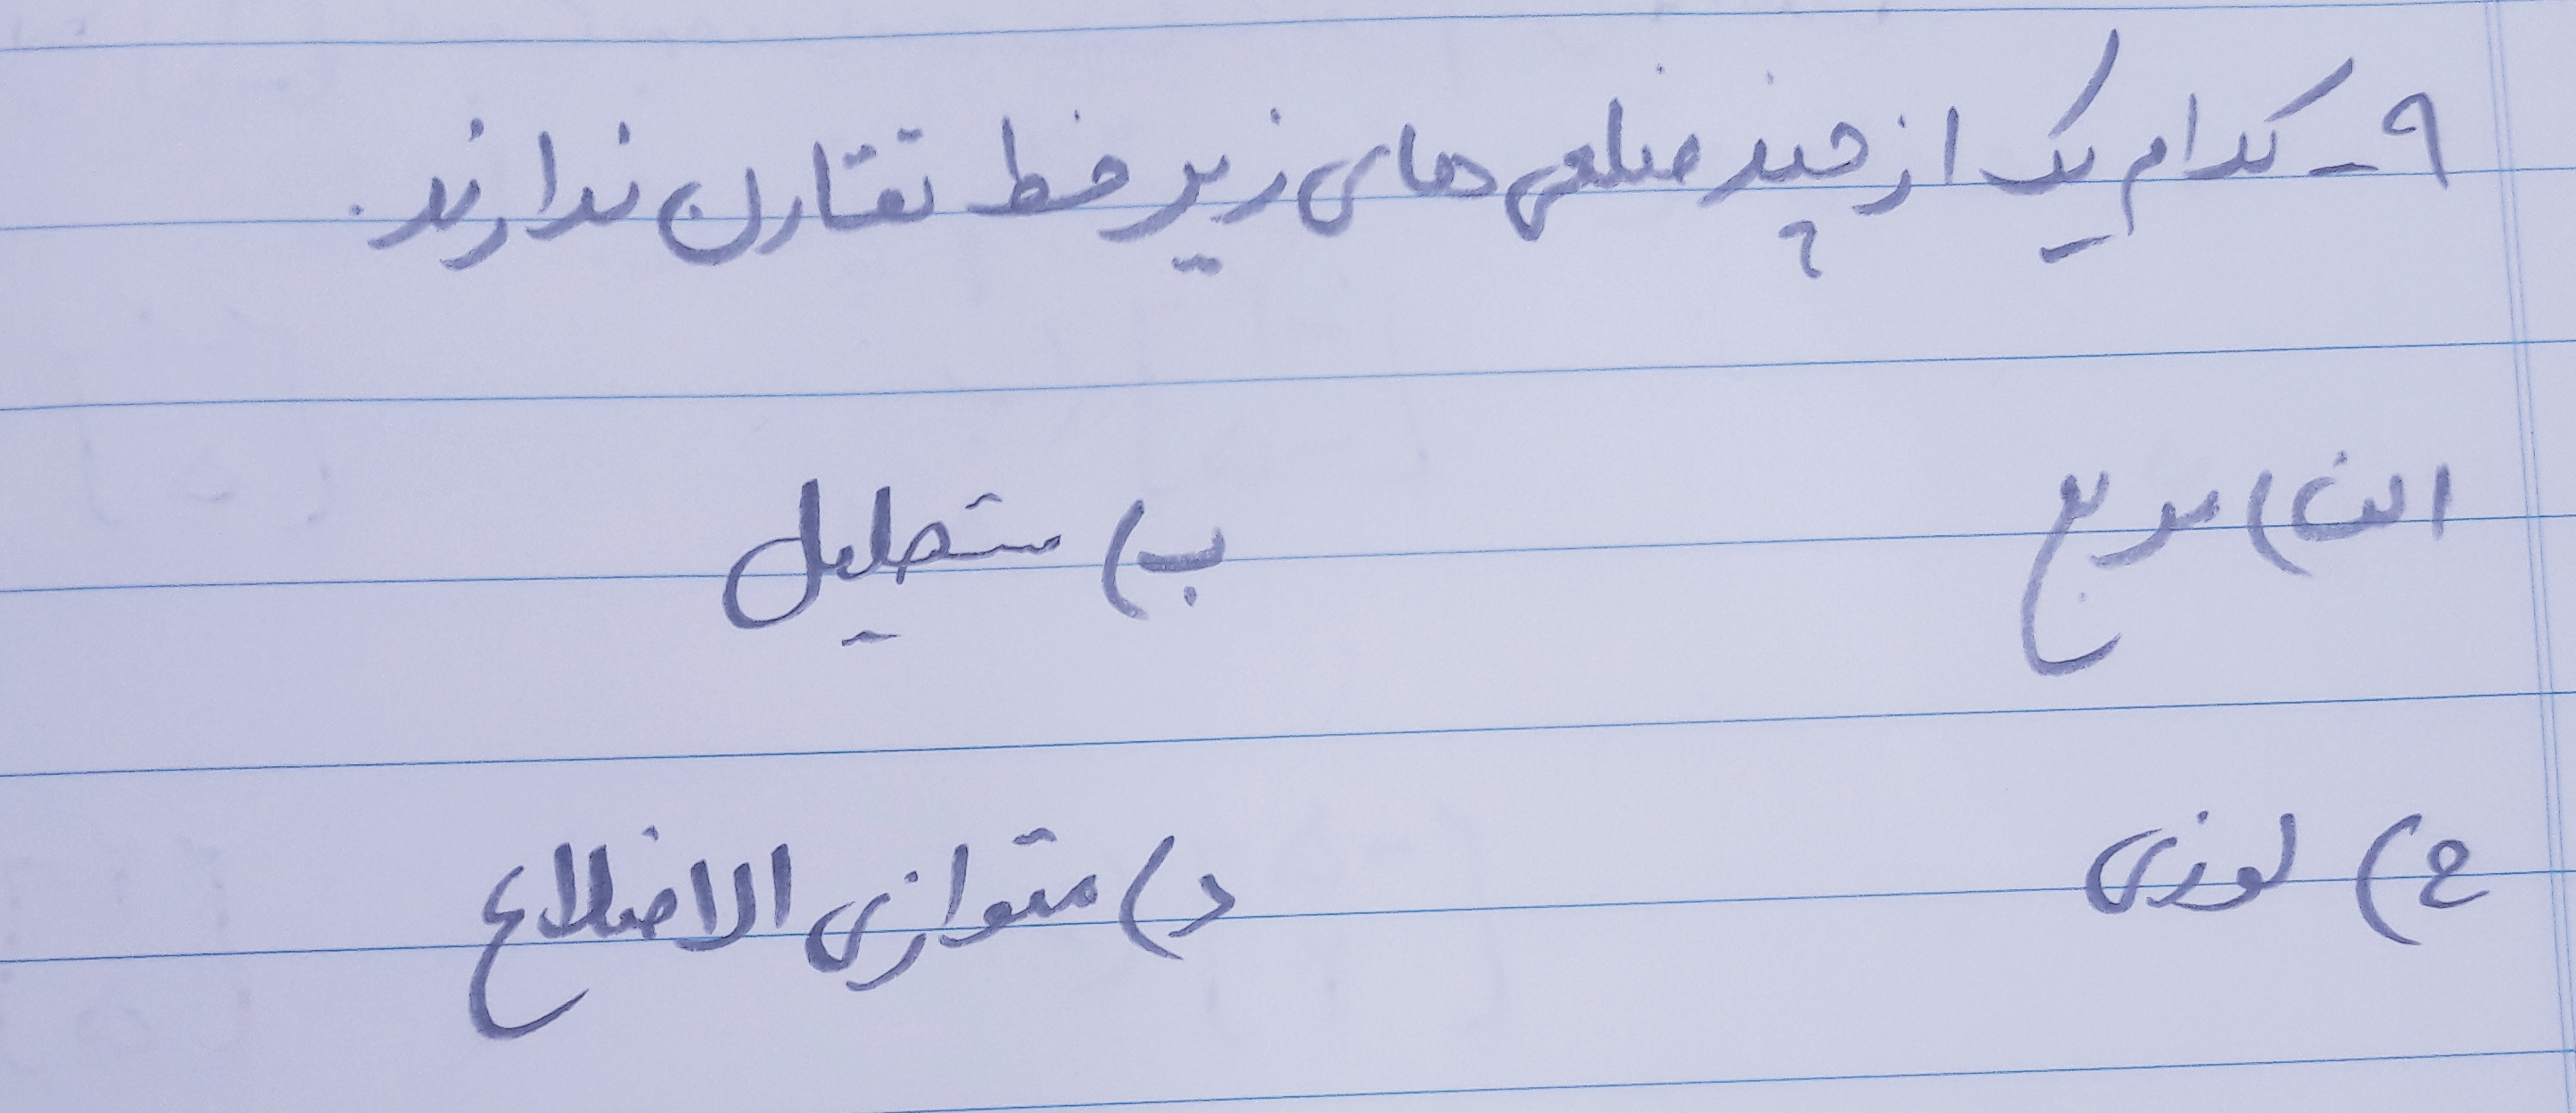 ۹- کدام یک از چند ضلعی های زیر خط تقارن ندارند.
الف) مربع ب) مستطیل
ج) لوزی د) متوازی الاضلاع